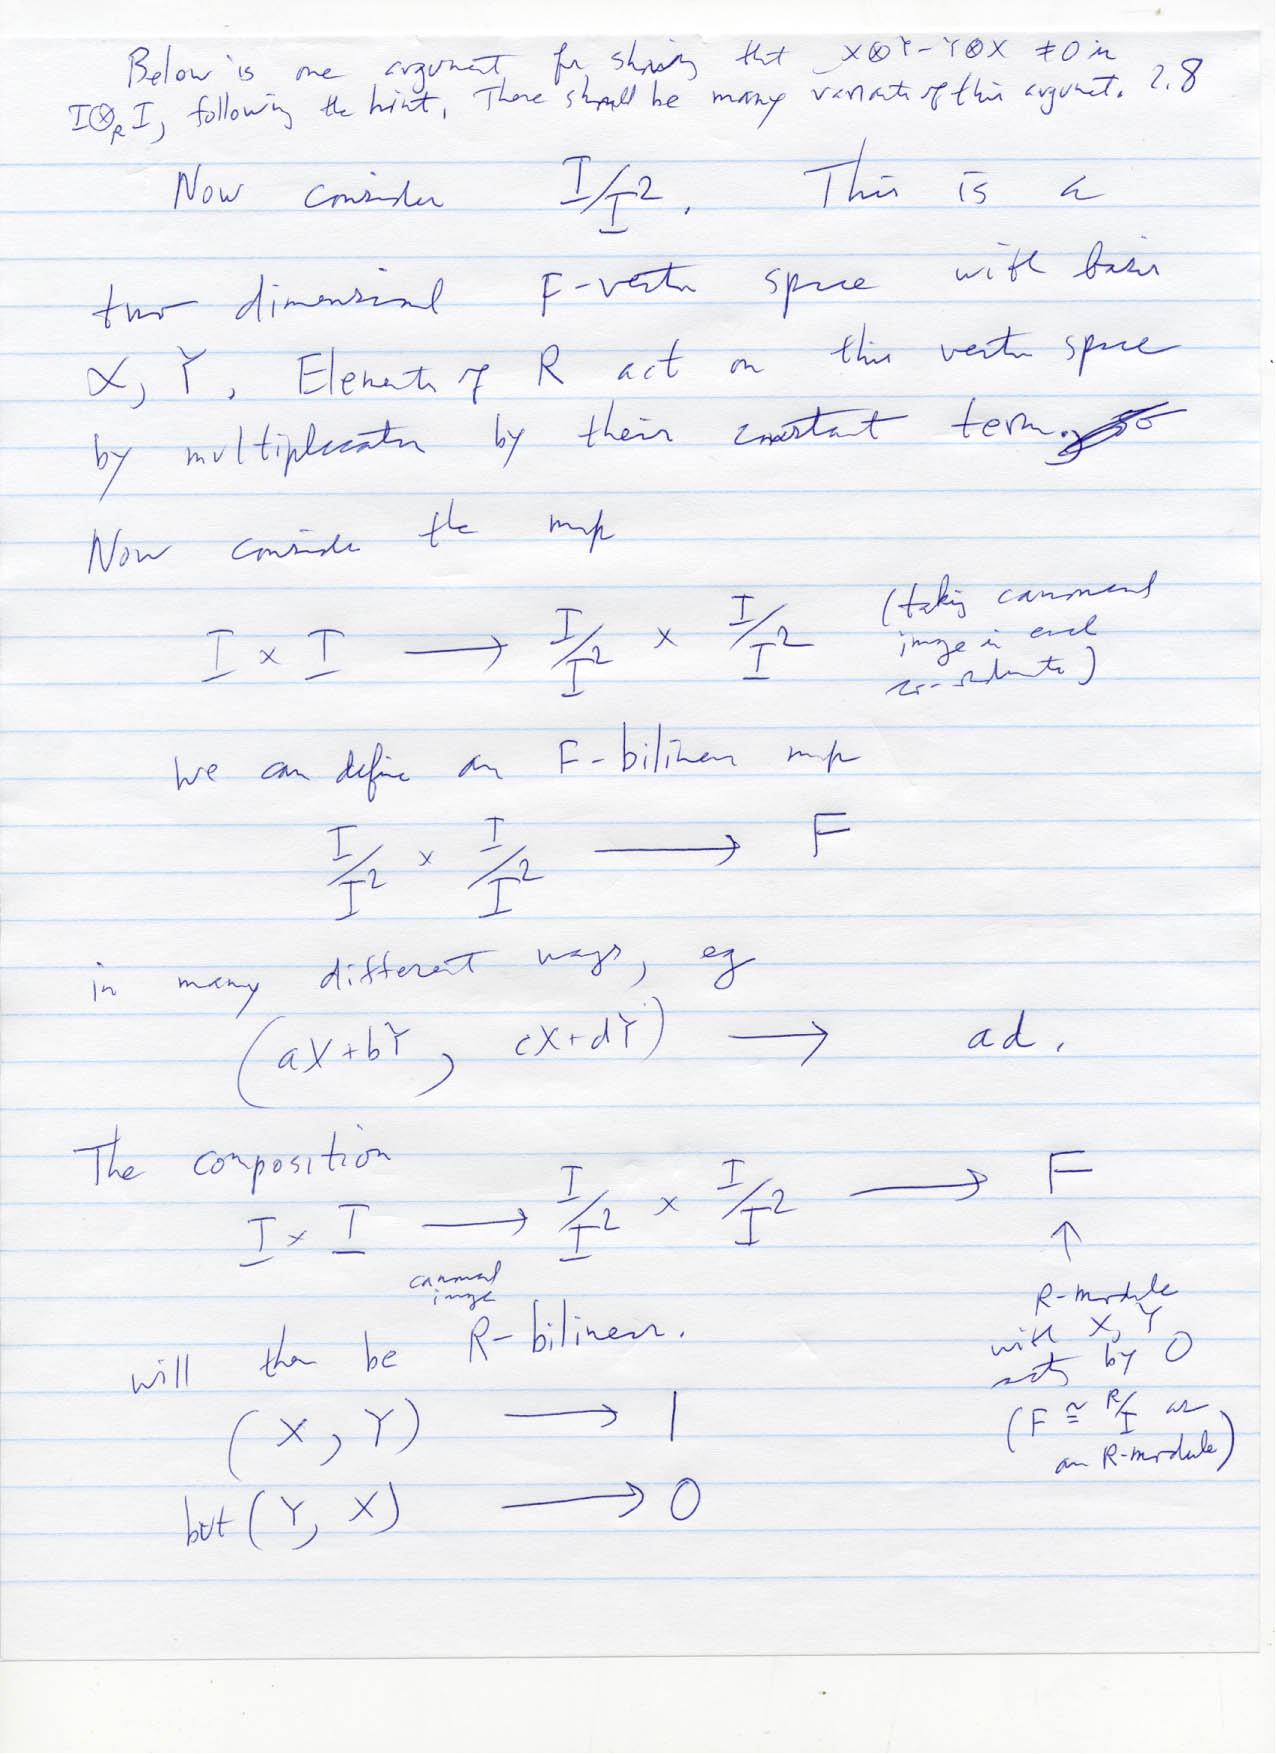 Below is one argument for showing that X⊗Y-Y⊗X ≠0 in
I⊗_R I, following the hint. There should be many variants of this argument. 2.8
Now consider I/I². This is a
two dimensional F-vector space with basis
X, Y. Elements of R act on this vector space
by multiplication by their constant term.
Now consider the map
I × I → I/I² × I/I² (taking canonical
image in each
co-ordinate)
We can define an F-bilinear map
I/I² × I/I² → F
in many different ways, eg
(aX+bY, cX+dY) → ad.
The composition
I × I → I/I² × I/I² → F
canonical
image
↑
R-module
with X, Y
acts by 0
(F ≅ R/I as
an R-module)
will then be R-bilinear.
(X, Y) → 1
but (Y, X) → 0